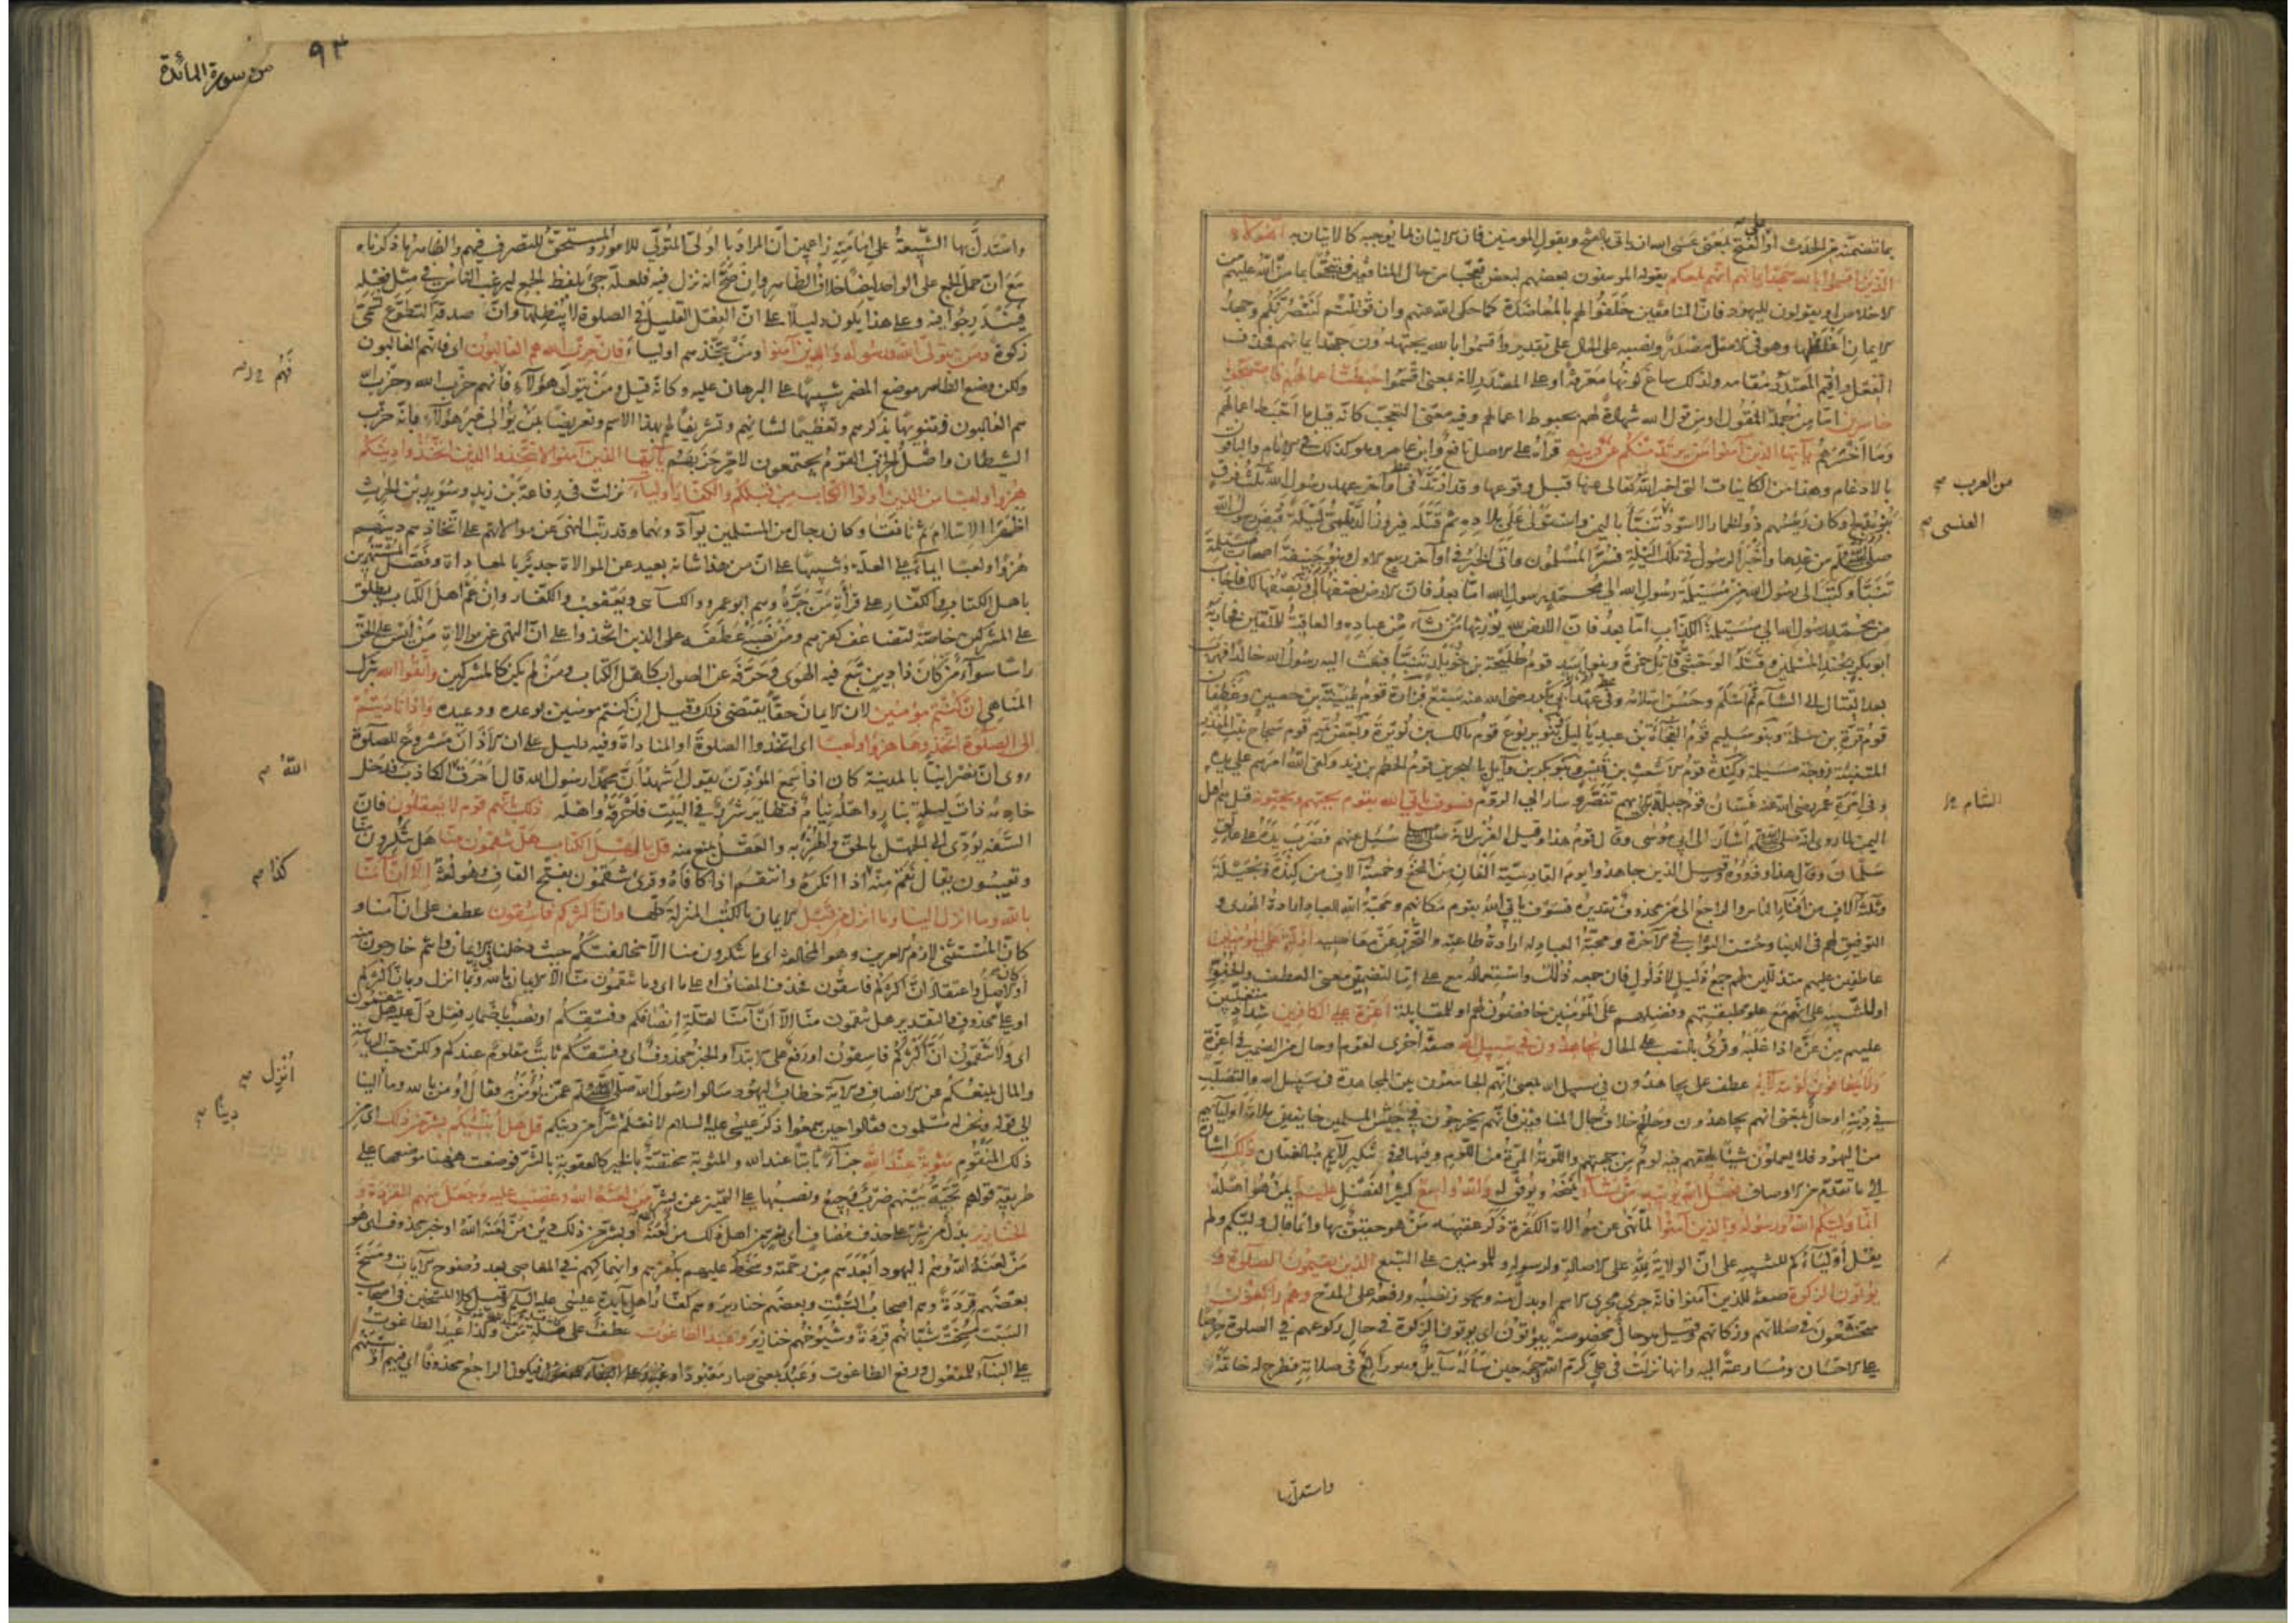 بما تضمنه من الحدث او بالفتح بمعنى عسى الله ان ياتي بالفتح وبقول المومنين فان الاتيان بما يوجبه كالاتيان به أهؤلاء
الذين اقسموا بالله جهد ايمانهم انهم لمعكم يقوله المومنون بعضهم لبعض تعجبا من حال المنافقين وتبجحا بما من الله عليهم من
الاخلاص او يقولون لليهود فان المنافقين حلفوا لهم بالمعاضدة كما حكى الله عنهم وان قوتلتم لننصرنكم وجهد
الايمان اغلظها وهو في الاصل مصدر ونصبه على الحال على تقدير واقسموا بالله يجتهدون جهد ايمانهم فحذف
الفعل واقيم المصدر مقامه ولذلك ساغ كونها معرفة او على المصدر لانه بمعنى اقسموا حبطت اعمالهم فاصبحوا
خاسرين اما من جملة المقول او من قول الله شهادة لهم بحبوط اعمالهم وفيه معنى التعجب كانه قيل ما احبط اعمالهم
وما اخسرهم يا ايها الذين آمنوا من يرتد منكم عن دينه قراه على الاصل نافع وابن عامر وهو كذلك في الامام والباقون
بالادغام وهذا من الكاينات التي اخبر الله تعالى عنها قبل وقوعها وقد ارتد في اواخر عهد رسول الله ثلث فرق
بنو مدلج وكان رئيسهم ذو الخمار الاسود تنبأ باليمن واستولى على بلاده ثم قتله فيروز الديلمي ليلة قبض رسول الله
من العرب صح
العنسى صح
صلى الله عليه وسلم من غدها واخبر الرسول في تلك الليلة فسر المسلمون واتى الخبر في اواخر ربيع الاول وبنو حنيفة اصحاب مسيلمة
تنبأ وكتب الى رسول الله من مسيلمة رسول الله الى محمد رسول الله اما بعد فان الارض نصفها لي ونصفها لك فاجاب
من محمد رسول الله الى مسيلمة الكذاب اما بعد فان الارض لله يورثها من يشاء من عباده والعاقبة للمتقين فحاربه
ابو بكر بجند المسلمين وقتله الوحشي قاتل حمزة وبنو اسد قوم طليحة بن خويلد تنبأ فبعث اليه رسول الله خالدا فهرب
بعد القتال الى الشام ثم اسلم وحسن اسلامه وفي عهد ابي بكر رضى الله عنه سبع فزارة قوم عيينة بن حصين وغطفان
قوم قرة بن سلمة وبنو سليم قوم الفجاءة بن عبد ياليل وبنو يربوع قوم مالك بن نويرة وبعض تميم قوم سجاح بنت المنذر
المتنبئة زوجة مسيلمة وكندة قوم الاشعث بن قيس وبنو بكر بن وايل بالبحرين قوم الحطم بن زيد وكفى الله امرهم على يده
وفي امرة عمر رضى الله عنه غسان قوم جبلة بن ايهم تنصر وسار الى الروم فسوف ياتي الله بقوم يحبهم ويحبونه قيل هم اهل
الشام
اليمن لما روى انه صلى الله عليه وسلم اشار الى ابي موسى وقال قوم هذا وقيل الفرس لانه صلى الله عليه وسلم سئل عنهم فضرب يده على عاتق
سلمان وقال هذا وذووه وقيل الذين جاهدوا يوم القادسية الفان من النخع وخمسة آلاف من كندة وبجيلة
وثلثة آلاف من افناء الناس والراجع الى من محذوف تقديره فسوف ياتي الله بقوم مكانهم ومحبة الله للعباد ارادة الهدى و
التوفيق لهم في الدنيا وحسن الثواب في الاخرة ومحبة العباد له ارادة طاعته والتحرز عن معاصيه اذلة على المؤمنين
عاطفين عليهم متذللين لهم جمع ذليل لا ذلول فان جمعه ذلل واستعماله مع على اما لتضمين معنى العطف والحنو
او للتنبيه على انهم مع علو طبقتهم وفضلهم على المؤمنين خافضون لهم او للمقابلة اعزة على الكافرين شداد متغلبين
عليهم من عزه اذا غلبه وقرئ بالنصب على الحال يجاهدون في سبيل الله صفة اخرى لقوم او حال من الضمير في اعزة
ولا يخافون لومة لائم عطف على يجاهدون بمعنى انهم الجامعون بين المجاهدة في سبيل الله والتصلب
في دينه او حال بمعنى انهم يجاهدون وحالهم خلاف حال المنافقين فانهم يخرجون في جيش المسلمين خايفين ملامة اوليائهم
من اليهود فلا يعملون شيئا يلحقهم فيه لوم من جهتهم واللومة المرة من اللوم وفيها وفي تنكير لائم مبالغتان ذلك اشارة
الى ما تقدم من الاوصاف فضل الله يوتيه من يشاء يمنحه ويوفق له والله واسع كثير الفضل عليم بمن هو اهله
انما وليكم الله ورسوله والذين آمنوا لما نهى عن موالاة الكفرة ذكر عقيبه من هو حقيق بها وانما قال وليكم ولم
يقل اولياءكم للتنبيه على ان الولاية لله على الاصالة ولرسوله وللمومنين على التبع الذين يقيمون الصلوة و
يؤتون الزكوة صفة للذين آمنوا فانه جرى مجرى الاسم او بدل منه ويجوز نصبه ورفعه على المدح وهم راكعون
متخشعون في صلاتهم وزكاتهم وقيل هو حال مخصوصة بيؤتون اى يوتون الزكوة في حال ركوعهم في الصلوة حرصا
على الاحسان ومسارعة اليه وانها نزلت في علي كرم الله وجهه حين ساله سايل وهو راكع في صلاته فطرح له خاتمه
واستدل بها
٩٣
من سورة المائدة
واستدل بها الشيعة على امامته زاعمين ان المراد بالولي المتولي للامور والمستحق للتصرف فيهم والظاهر ما ذكرناه
مع ان حمل الجمع على الواحد ايضا خلاف الظاهر وان صح انه نزل فيه فلعله جئ بلفظ الجمع ليرغب الناس في مثل فعله
فيندرجوا فيه وعلى هذا يكون دليلا على ان الفعل القليل في الصلوة لا يبطلها وان صدقة التطوع تسمى
زكوة ومن يتول الله ورسوله والذين آمنوا ومن يتخذهم اولياء فان حزب الله هم الغالبون اى فانهم الغالبون
فهم
ولكن وضع الظاهر موضع المضمر تنبيها على البرهان عليه وكانه قيل ومن يتول هؤلاء فانهم حزب الله وحزب الله
هم الغالبون وتنويها بذكرهم وتعظيما لشانهم وتشريفا لهم بهذا الاسم وتعريضا بمن يوالى غير هؤلاء بانه حزب
الشيطان واصل الحزب القوم يجتمعون لامر حزبهم يا ايها الذين آمنوا لا تتخذوا الذين اتخذوا دينكم
هزوا ولعبا من الذين اوتوا الكتاب من قبلكم والكفار اولياء نزلت في رفاعة بن زيد وسويد بن الحرث
اظهرا الاسلام ثم نافقا وكان رجال من المسلمين يوادونهما وقد رتب النهى عن موالاتهم على اتخاذهم دينهم
هزوا ولعبا ايماء على العلة وتنبيها على ان من هذا شانه بعيد عن الموالاة جدير بالمعاداة وفصل المستهزئين
باهل الكتاب والكفار على قرأة من جره وهم ابو عمرو والكسآئي ويعقوب والكفار وان عم اهل الكتاب يطلق
على المشركين خاصة لتضاعف كفرهم ومن نصبه عطفه على الذين اتخذوا على ان النهى عن موالاة من ليس على الحق
راسا سواء من كان ذا دين تبع فيه الهوى وحرفه عن الصواب كاهل الكتاب ومن لم يكن كالمشركين واتقوا الله بترك
المناهى ان كنتم مؤمنين لان الايمان حقا يقتضى ذلك وقيل ان كنتم مومنين بوعده ووعيده واذا ناديتم
الى الصلوة اتخذوها هزوا ولعبا اى اتخذوا الصلوة او المناداة وفيه دليل على ان الاذان مشروع للصلوة
روى ان نصرانيا بالمدينة كان اذا سمع المؤذن يقول اشهد ان محمدا رسول الله قال احرق الله الكاذب فدخل
الله صح
خادمه ذات ليلة بنار واهله نيام فتطاير شرره في البيت فاحرقه واهله ذلك بانهم قوم لا يعقلون فان
السفه يؤدى الى الجهل بالحق والهزء به والعقل يمنع منه قل يا اهل الكتاب هل تنقمون منا هل تنكرون منا
كذا صح
وتعيبون يقال نقم منه اذا انكره وانتقم اذا كافاه وقرئ تنقمون بفتح القاف وهو لغة الا ان آمنا
بالله وما انزل الينا وما انزل من قبل الايمان بالكتب المنزلة كلها وان اكثركم فاسقون عطف على ان آمنا و
كان المستثنى لازم الامرين وهو المخالفة اى ما تنكرون منا الا مخالفتكم حيث دخلنا في الايمان وانتم خارجون منه
او كان الاصل واعتقاد ان اكثركم فاسقون فحذف المضاف او على ما اى وما تنقمون منا الا الايمان بالله وبما انزل وبان اكثركم
او على محذوف والتقدير هل تنقمون منا الا ان آمنا لقلة انصافكم وفسقكم او نصب باضمار فعل دل عليه هل تنقمون
اى ولا تنقمون ان اكثركم فاسقون او رفع على الابتدا والخبر محذوف اى وفسقكم ثابت معلوم عندكم ولكن حب الرياسة
انزل صح
والمال يمنعكم عن الانصاف والاية خطاب ليهود سالوا رسول الله صلى الله عليه وسلم عمن يؤمن به فقال اومن بالله وما الينا
دينا صح
الى قوله ونحن له مسلمون فقالوا حين سمعوا ذكر عيسى عليه السلام لا نعلم شرا من دينكم قل هل انبئكم بشر من ذلك اى من
ذلك المنقوم مثوبة عند الله جزاء ثابتا عند الله والمثوبة مختصة بالخير كالعقوبة بالشر فوضعت ههنا موضعها على
طريقة قولهم تحية بينهم ضرب وجيع ونصبها على التميز عن بشر من لعنه الله وغضب عليه وجعل منهم القردة و
الخنازير بدل من شر على حذف مضاف اى بشر من اهل ذلك من لعنه الله او بشر من ذلك دين من لعنه الله او خبر محذوف اى هو
من لعنه الله وهم اليهود ابعدهم من رحمته وسخط عليهم بكفرهم وانهماكهم في المعاصى بعد وضوح الايات ومسخ
بعضهم قردة وهم اصحاب السبت وبعضهم خنازير وهم كفار اهل مايدة عيسى عليه السلام وقيل كلا المسخين في اصحاب
السبت مسخت شبانهم قردة وشيوخهم خنازير وعبد الطاغوت عطف على صلة من وكذا عبد الطاغوت
على البناء للمفعول ورفع الطاغوت وعبد بمعنى صار معبودا فيكون الراجع محذوفا اى فيهم او بينهم